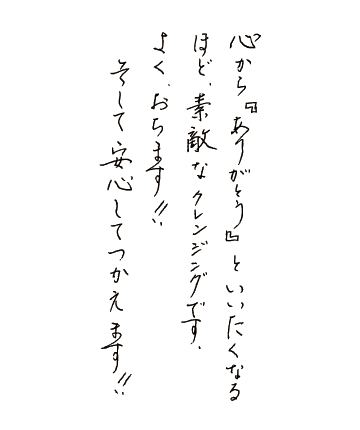 心から『ありがとう』といいたくなる
ほど、素敵なクレンジングです.
よく、おちます!!
そして安心してつかえます!!